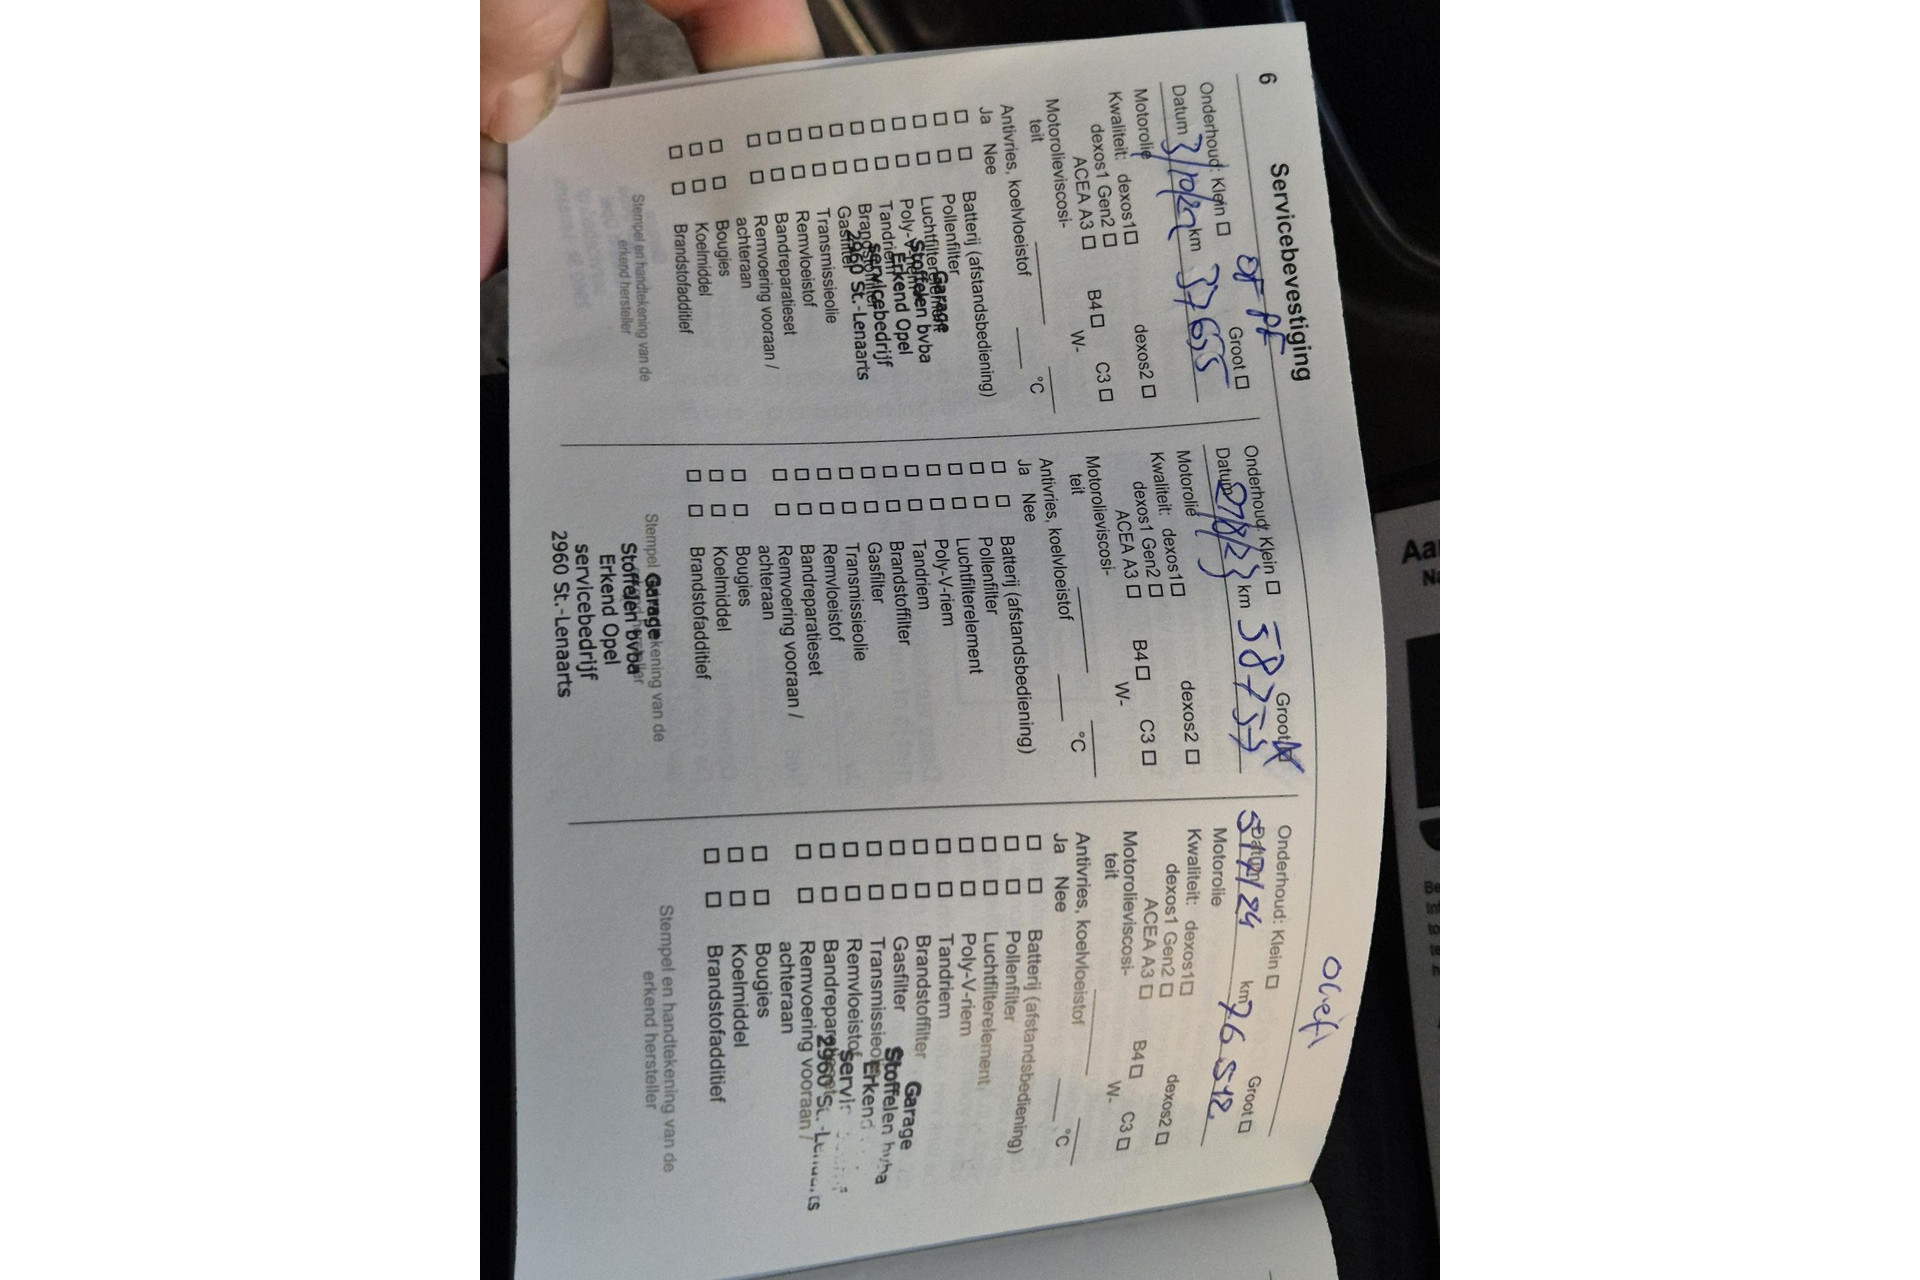 6 Servicebevestiging
OF PF
Onderhoud: Klein Groot
Datum 3/10/2 km 37655
Motorolie
Kwaliteit: dexos1 dexos2
dexos1 Gen2
ACEA A3 B4 C3
Motorolieviscosi-
teit W-
Antivries, koelvloeistof °C
Ja Nee
Batterij (afstandsbediening)
Pollenfilter
Luchtfilterelement
Poly-V-riem
Tandriem
Brandstoffilter
Gasfilter
Transmissieolie
Remvloeistof
Bandreparatieset
Remvoering vooraan /
achteraan
Bougies
Koelmiddel
Brandstofadditief
Garage
Stoffelen bvba
Erkend Opel
servicebedrijf
2960 St.-Lenaarts
Stempel en handtekening van de
erkend hersteller
Onderhoud: Klein Groot
Datum km 58755
Motorolie
Kwaliteit: dexos1 dexos2
dexos1 Gen2
ACEA A3 B4 C3
Motorolieviscosi-
teit W-
Antivries, koelvloeistof °C
Ja Nee
Batterij (afstandsbediening)
Pollenfilter
Luchtfilterelement
Poly-V-riem
Tandriem
Brandstoffilter
Gasfilter
Transmissieolie
Remvloeistof
Bandreparatieset
Remvoering vooraan /
achteraan
Bougies
Koelmiddel
Brandstofadditief
Stempel en handtekening van de
erkend hersteller
Garage
Stoffelen bvba
Erkend Opel
servicebedrijf
2960 St.-Lenaarts
Onderhoud: Klein Groot
Datum 5/7/24 km 76512
Motorolie
Kwaliteit: dexos1 dexos2
dexos1 Gen2
ACEA A3 B4 C3
Motorolieviscosi-
teit W-
Antivries, koelvloeistof °C
Ja Nee
Batterij (afstandsbediening)
Pollenfilter
Luchtfilterelement
Poly-V-riem
Tandriem
Brandstoffilter
Gasfilter
Transmissieolie
Remvloeistof
Bandreparatieset
Remvoering vooraan /
achteraan
Bougies
Koelmiddel
Brandstofadditief
Garage
Stoffelen bvba
Erkend
2960 St.-Lenaarts
Stempel en handtekening van de
erkend hersteller